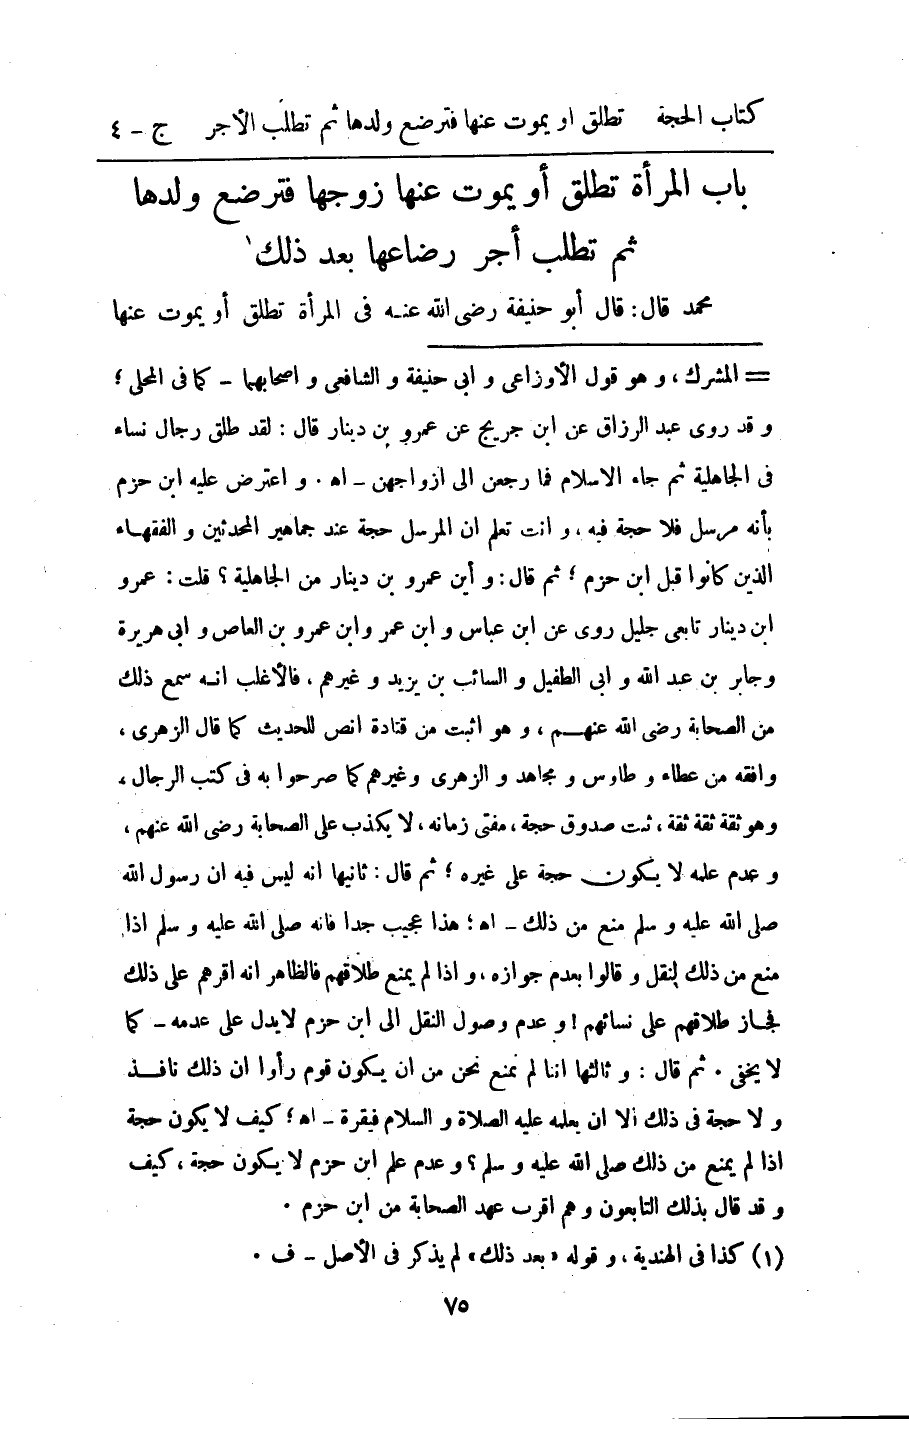 كتاب الحجة تطلق او يموت عنها فترضع ولدها ثم تطلب الأجر ج - ٤
باب المرأة تطلق أو يموت عنها زوجها فترضع ولدها
ثم تطلب أجر رضاعها بعد ذلك١
محمد قال: قال أبو حنيفة رضى الله عنه فى المرأة تطلق أو يموت عنها
= المشرك، و هو قول الأوزاعى و ابى حنيفة و الشافعى و اصحابهما - كما فى المحلى؛
و قد روى عبد الرزاق عن ابن جريج عن عمرو بن دينار قال: لقد طلق رجال نساء
فى الجاهلية ثم جاء الاسلام فما رجعن الى ازواجهن - اه. و اعترض عليه ابن حزم
بأنه مرسل فلا حجة فيه، و انت تعلم ان المرسل حجة عند جماهير المحدثين و الفقهاء
الذين كانوا قبل ابن حزم؛ ثم قال: و أين عمرو بن دينار من الجاهلية؟ قلت: عمرو
ابن دينار تابعى جليل روى عن ابن عباس و ابن عمر وابن عمرو بن العاص و ابى هريرة
وجابر بن عبد الله و ابى الطفيل و السائب بن يزيد و غيرهم، فالأغلب انه سمع ذلك
من الصحابة رضى الله عنهم، و هو اثبت من قتادة انص للحديث كما قال الزهرى،
وافقه من عطاء و طاوس و مجاهد و الزهرى وغيرهم كما صرحوا به فى كتب الرجال،
وهو ثقة ثقة ثقة، ثبت صدوق حجة، مفتى زمانه، لا يكذب على الصحابة رضى الله عنهم،
و عدم علمه لا يكون حجة على غيره؛ ثم قال: ثانيها انه ليس فيه ان رسول الله
صلى الله عليه و سلم منع من ذلك - اه؛ هذا عجيب جدا فانه صلى الله عليه و سلم اذا
منع من ذلك لنقل و قالوا بعدم جوازه، و اذا لم يمنع طلاقهم فالظاهر انه اقرهم على ذلك
فجاز طلاقهم على نسائهم! و عدم وصول النقل الى ابن حزم لايدل على عدمه - كما
لا يخفى. ثم قال: و ثالثها اننا لم نمنع نحن من ان يكون قوم رأوا ان ذلك نافذ
و لا حجة فى ذلك الا ان يعلمه عليه الصلاة و السلام فيقرة - اه؛ كيف لا يكون حجة
اذا لم يمنع من ذلك صلى الله عليه و سلم؟ و عدم علم ابن حزم لا يكون حجة، كيف
و قد قال بذلك التابعون و هم اقرب عهد الصحابة من ابن حزم.
(١) كذا فى الهندية، و قوله «بعد ذلك» لم يذكر فى الأصل - ف.
٧٥